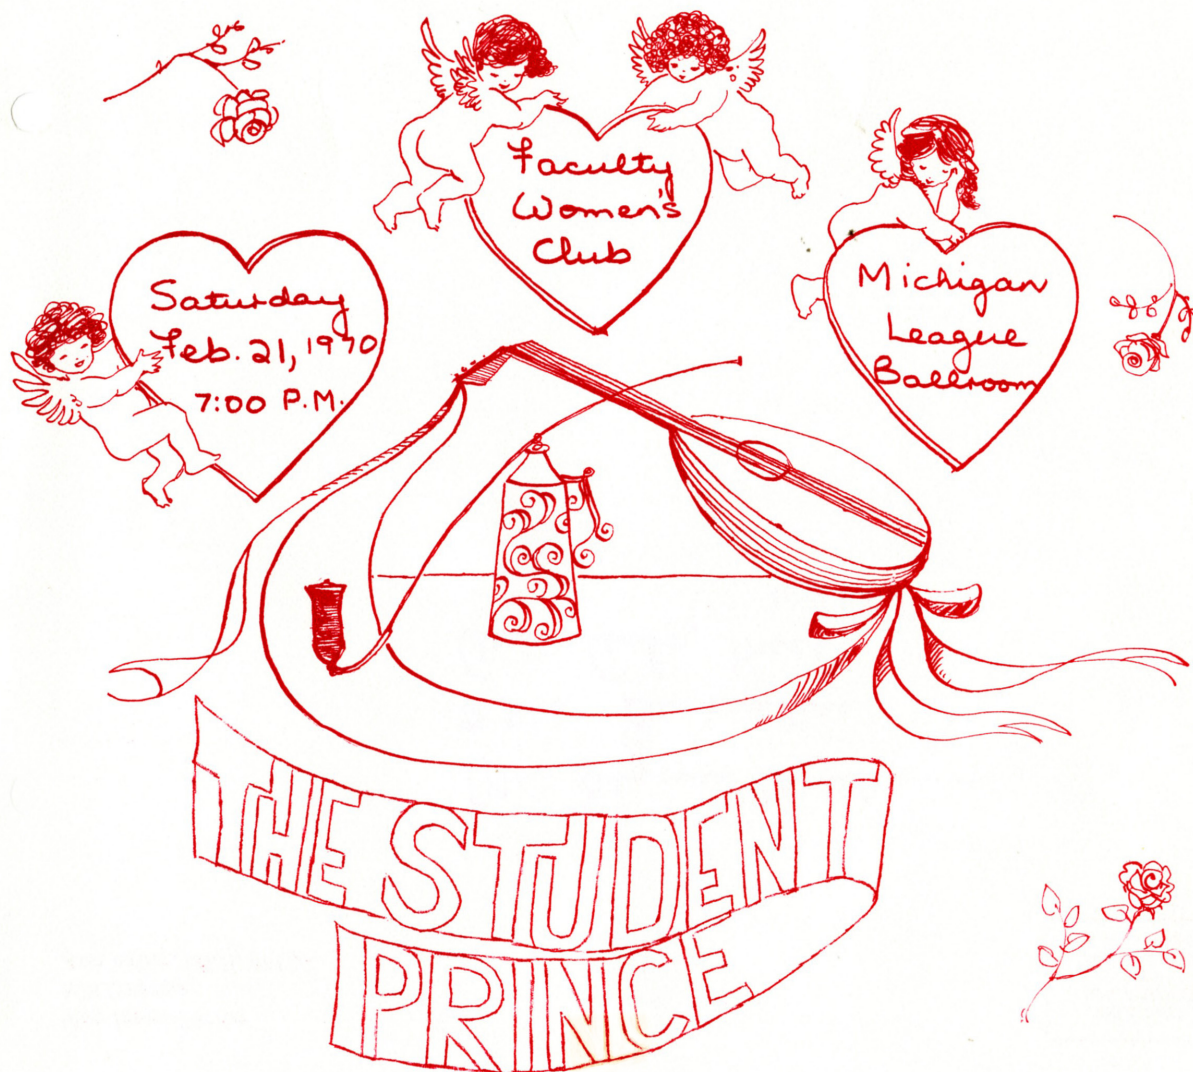 Faculty
Women's
Club
Saturday
Feb. 21, 1970
7:00 P.M.
Michigan
League
Ballroom
THE STUDENT
PRINCE